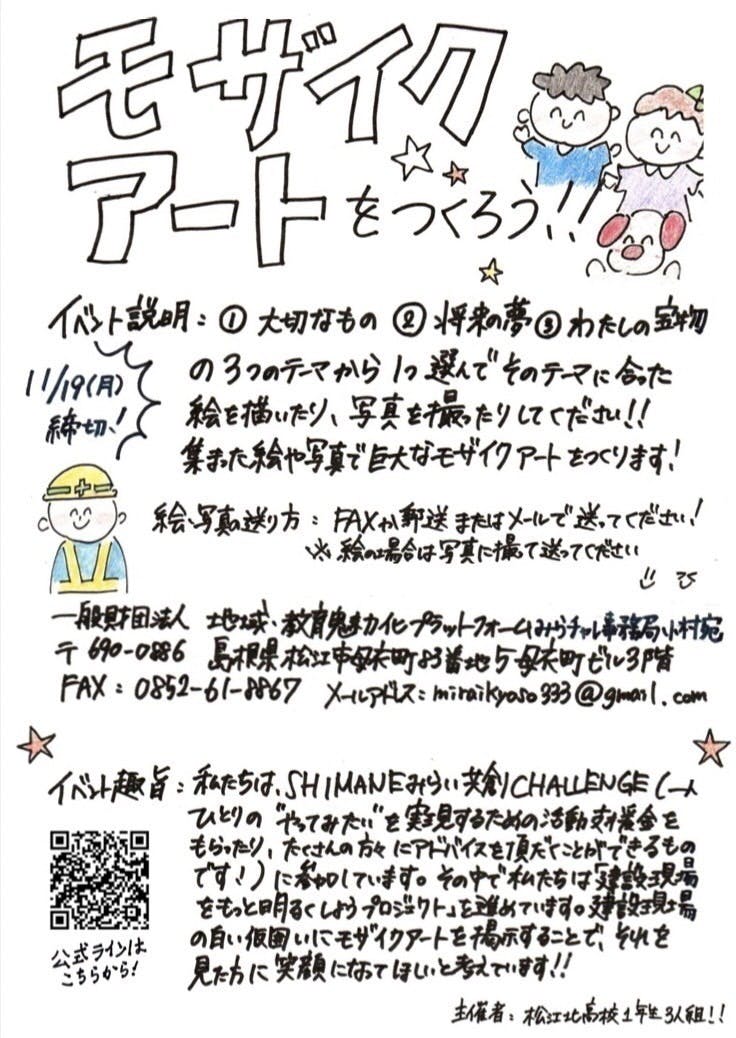 モザイク
アートをつくろう!!
イベント説明：① 大切なもの ② 将来の夢 ③ わたしの宝物
の3つのテーマから1つ選んでそのテーマに合った
絵を描いたり、写真を撮ったりしてください!!
集まった絵や写真で巨大なモザイクアートをつくります!
11/19(月)
締切!
絵・写真の送り方：FAXか郵送またはメールで送ってください!
※絵の場合は写真に撮って送ってください
一般財団法人 地域・教育魅力化プラットフォームみらチャレ事務局小村宛
〒690-0886 島根県松江市母衣町83番地5母衣町ビル3階
FAX：0852-61-8867 メールアドレス：miraikyoso333@gmail.com
イベント趣旨：私たちは、SHIMANEみらい共創CHALLENGE(一人
ひとりの“やってみたい”を実現するための活動支援金を
もらったり、たくさんの方々にアドバイスを頂だくことができるもの
です!)に参加しています。その中で私たちは「建設現場
をもっと明るくしようプロジェクト」を進めています。建設現場
の白い仮囲いにモザイクアートを掲示することで、それを
見た方に笑顔になってほしいと考えています!!
公式ラインは
こちらから!
主催者：松江北高校1年生3人組!!